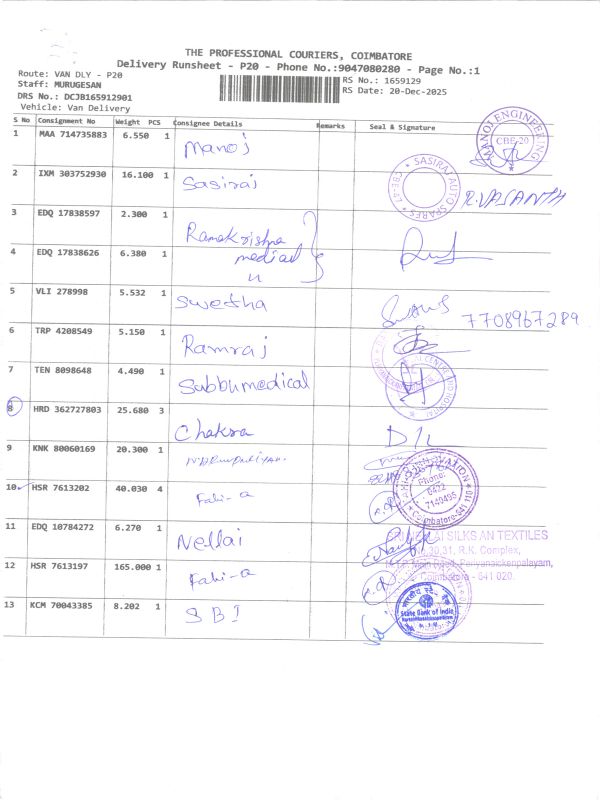 THE PROFESSIONAL COURIERS, COIMBATORE
Delivery Runsheet - P20 - Phone No.:9047080280 - Page No.:1
Route: VAN DLY - P20
Staff: MURUGESAN
DRS No.: DCJB165912901
Vehicle: Van Delivery
RS No.: 1659129
RS Date: 20-Dec-2025
S No Consignment No Weight PCS Consignee Details Remarks Seal & Signature
1 MAA 714735883 6.550 1 Manoj
MANOJ ENGINEERING CBE-20
2 IXM 303752930 16.100 1 Sasiraj
SASIRAJ AUTO SPARES R.VASANTH
3 EDQ 17838597 2.300 1 Ramakrishna
4 EDQ 17838626 6.380 1 medical
5 VLI 278998 5.532 1 Swetha 7708967289
6 TRP 4208549 5.150 1 Ramraj
7 TEN 8098648 4.490 1 Subbumedical
8 HRD 362727803 25.680 3 Chakra
9 KNK 80060169 20.300 1
10 HSR 7613202 40.030 4 Fahi-a
Phone: 0422 7149495 Coimbatore-641 110
11 EDQ 10784272 6.270 1 Nellai
SILKS AN TEXTILES
30,31, R.K. Complex,
Periyanaickenpalayam,
Coimbatore - 641 020.
12 HSR 7613197 165.000 1 Fahi-a
13 KCM 70043385 8.202 1 SBI
State Bank of India